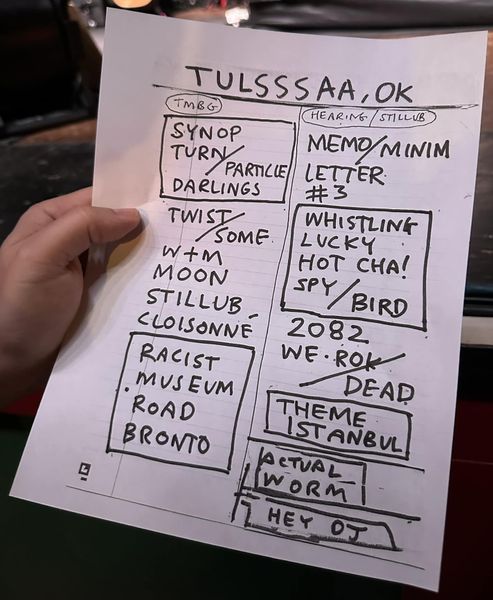 TULSSSAA, OK
TMBG
SYNOP
TURN/PARTICLE
DARLINGS
TWIST/SOME
W+M
MOON
STILLUB
CLOISONNÉ
RACIST
MUSEUM
ROAD
BRONTO
HEARING/STILLUB
MEMO/MINIM
LETTER
#3
WHISTLING
LUCKY
HOT CHA!
SPY/BIRD
2082
WE·ROK/DEAD
THEME
ISTANBUL
ACTUAL
WORM
HEY DJ